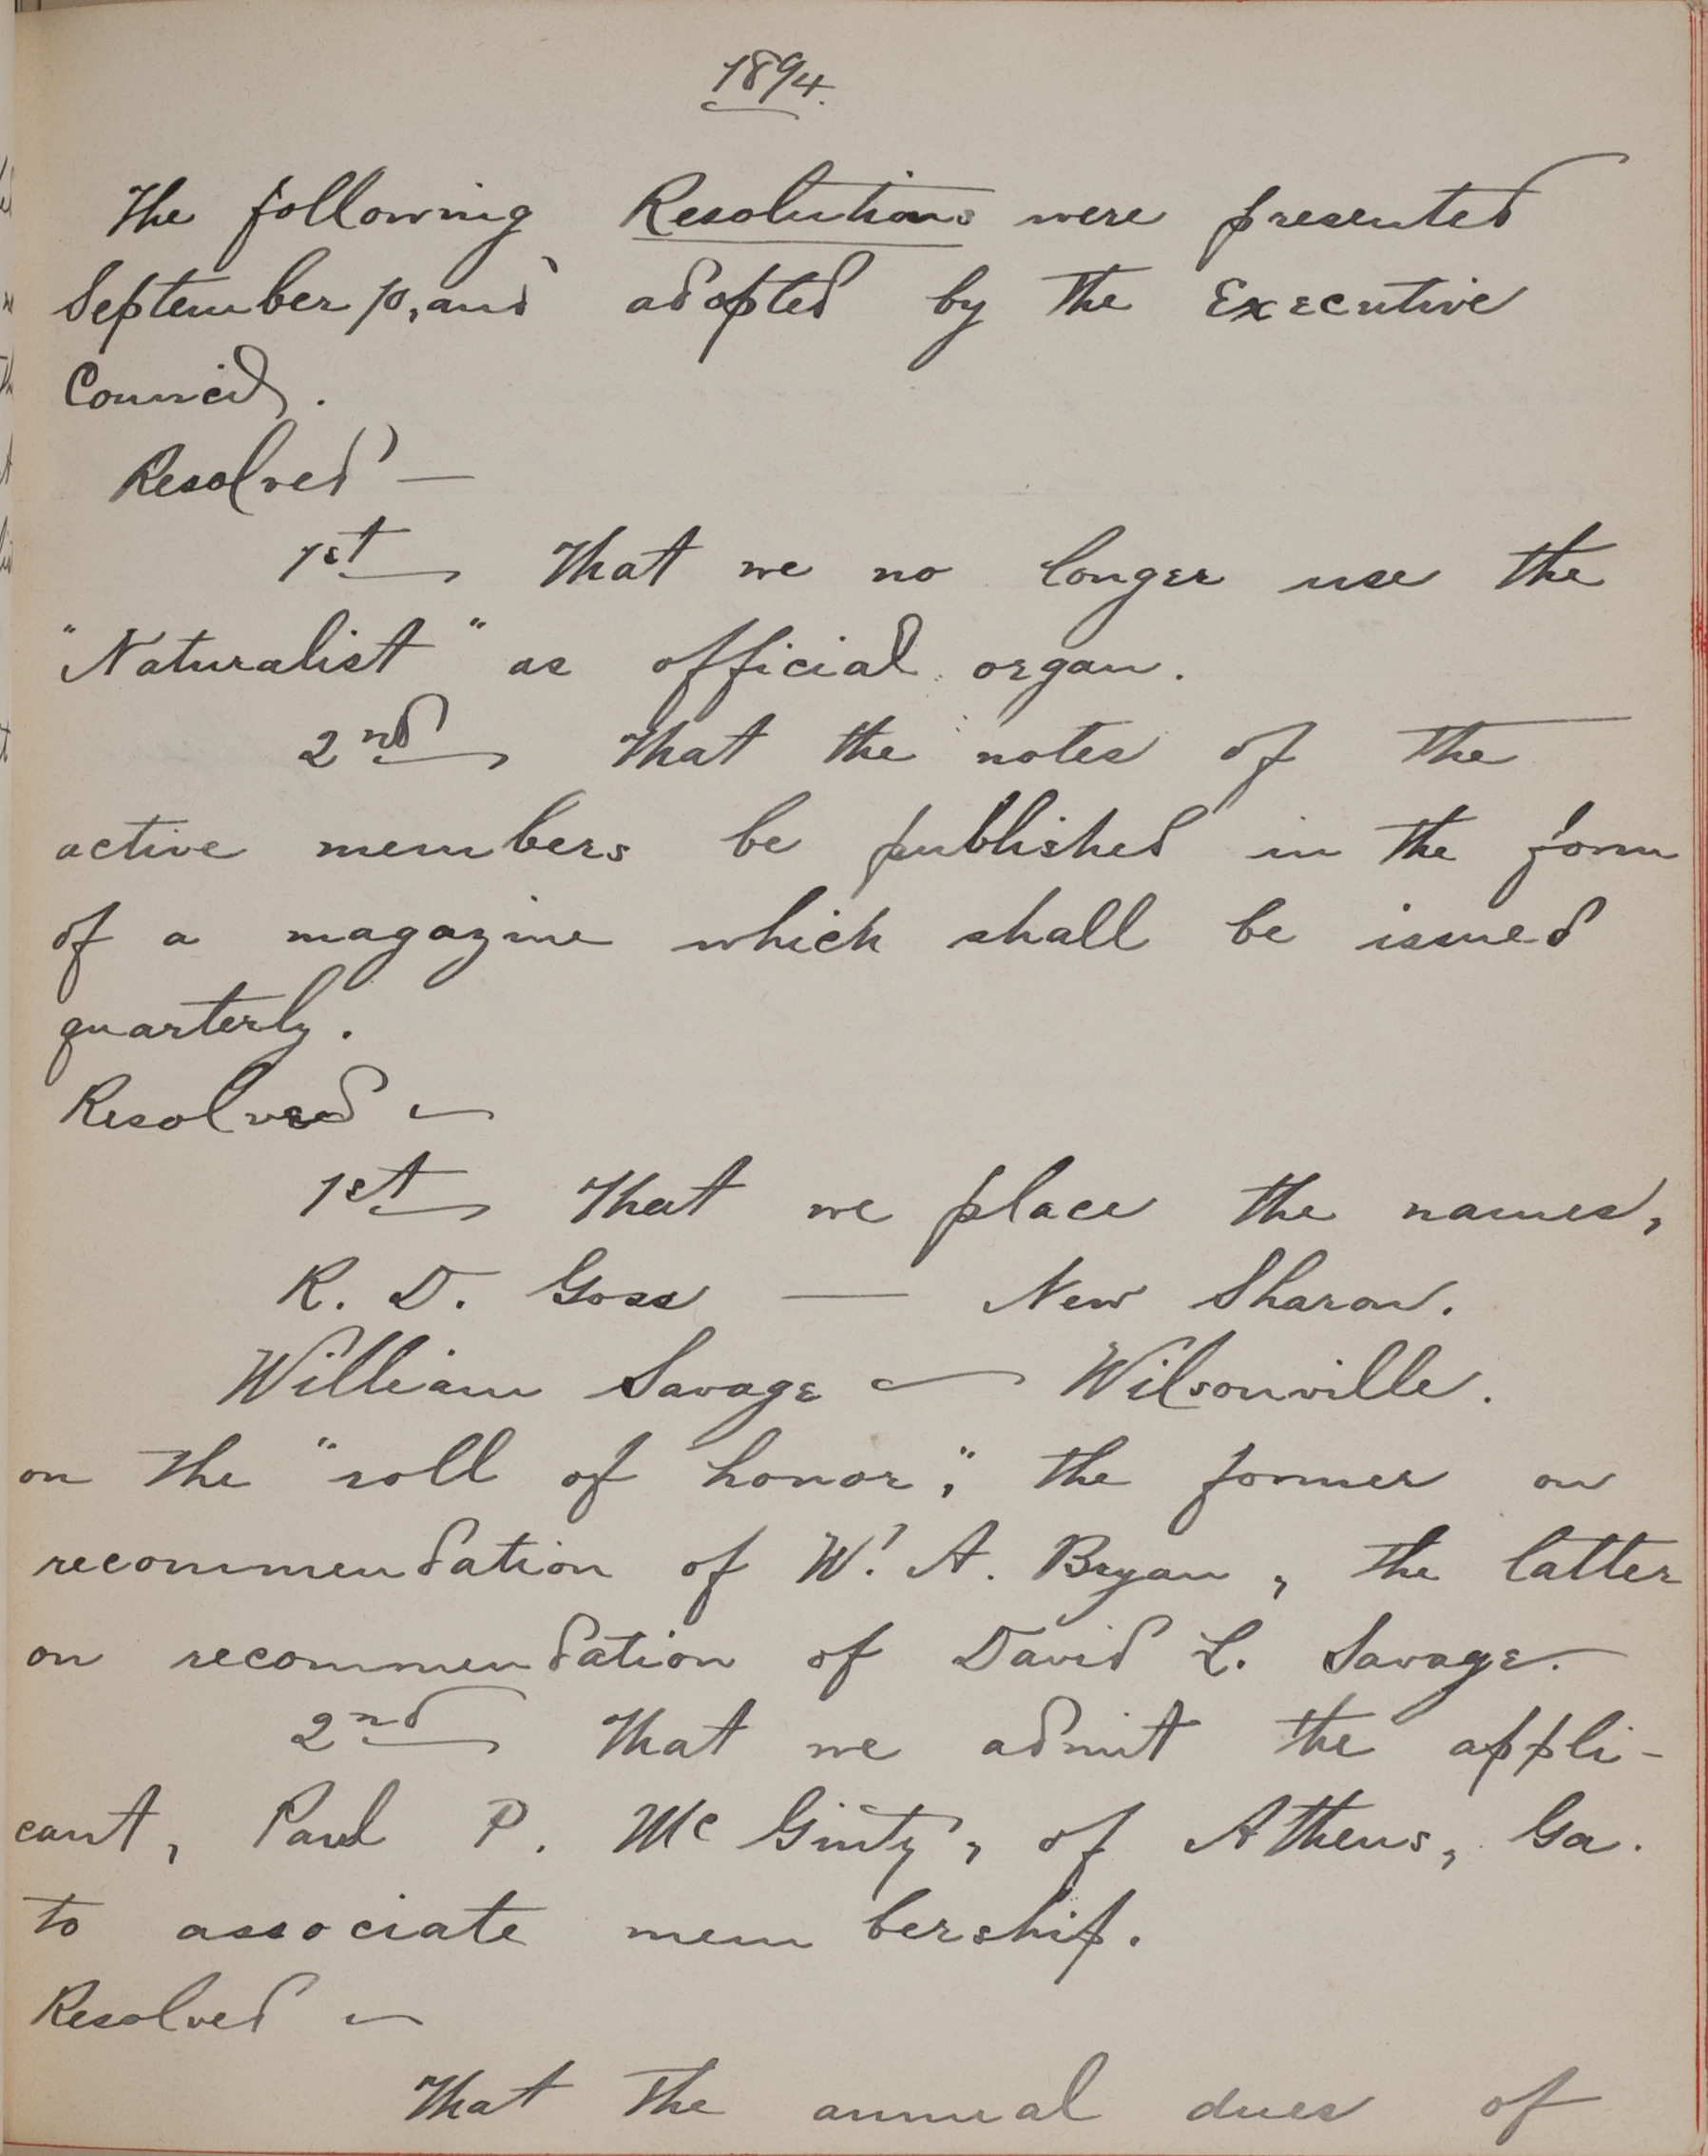 1894.
The following Resolutions were presented
September 10, and adopted by the Executive
Council.
Resolved —
1st That we no longer use the
"Naturalist" as official organ.
2nd That the notes of the
active members be published in the form
of a magazine which shall be issued
quarterly.
Resolved —
1st That we place the names,
R. D. Goss — New Sharon.
William Savage — Wilsonville.
on the "roll of honor," the former on
recommendation of W. A. Bryan, the latter
on recommendation of David L. Savage.
2nd That we admit the appli-
cant, Paul P. McGinty, of Athens, Ga.
to associate membership.
Resolved —
That the annual dues of